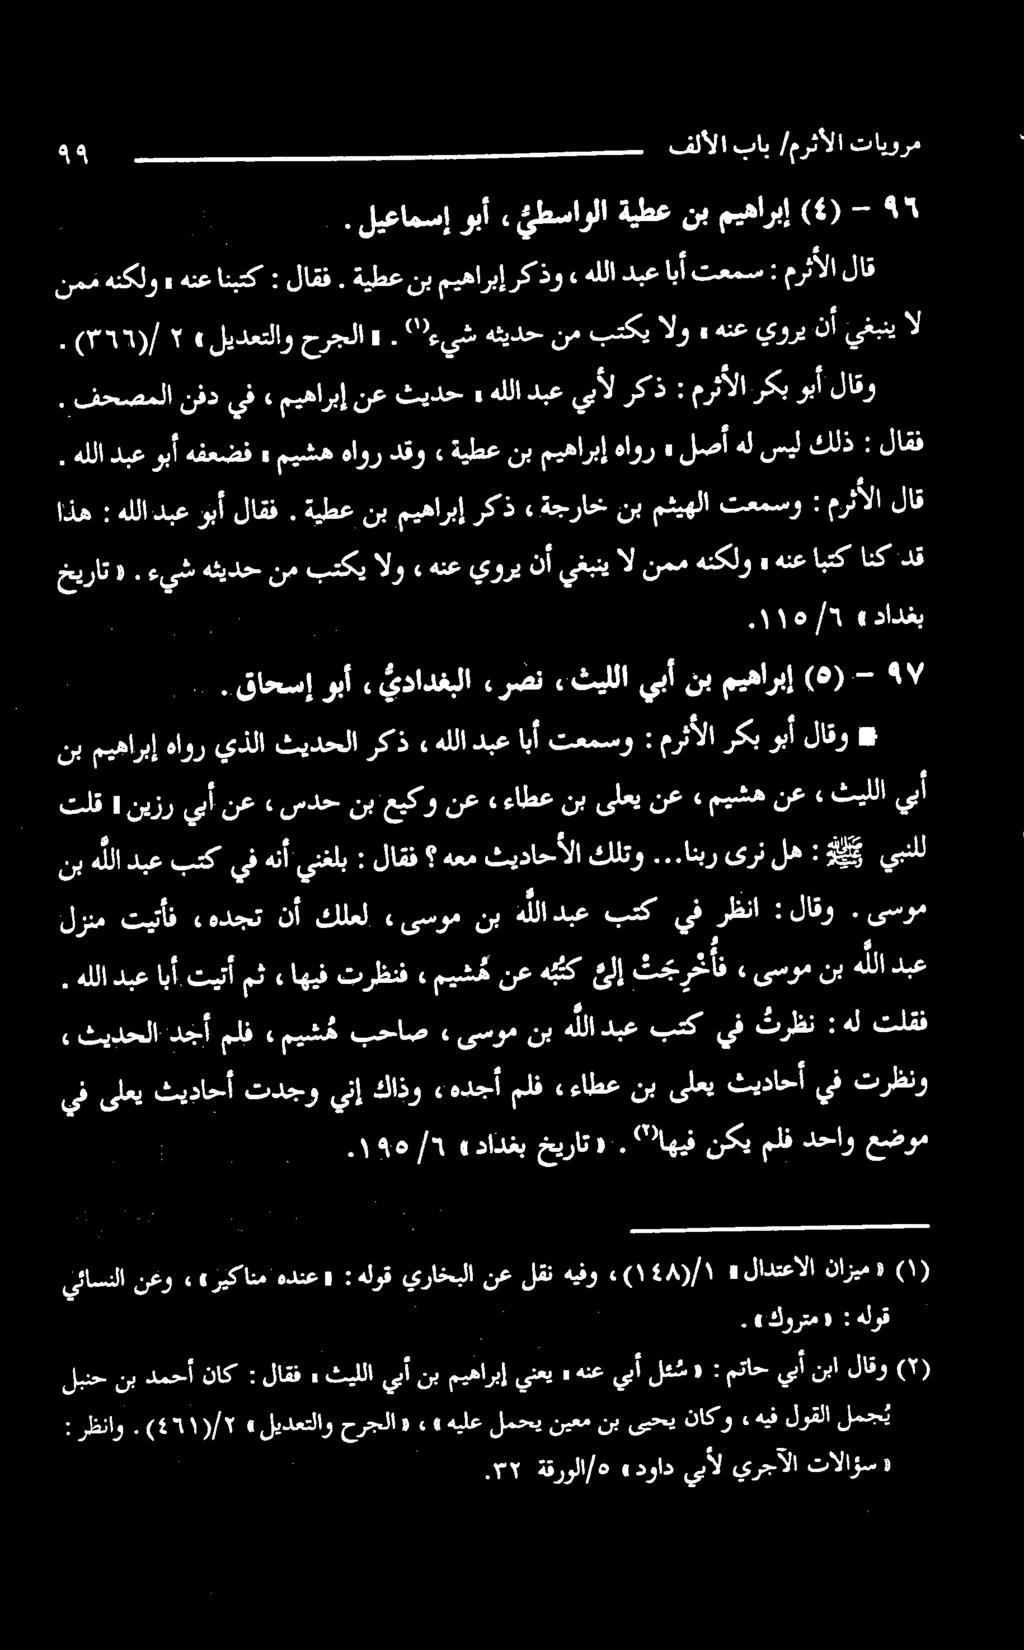 مرويات الأثرم/ باب الألف ٩٩
٩٦ - (٤) إبراهيم بن عطية الواسطيُّ ، أبو إسماعيل .
قال الأثرم : سمعت أبا عبد الله ، وذكر إبراهيم بن عطية . فقال : كتبنا عنه ، ولكنه ممن
لا ينبغي أن يروى عنه ، ولا يكتب من حديثه شيء(١) . « الجرح والتعديل » ٢ /(٣٦٦) .
وقال أبو بكر الأثرم : ذكر لأبي عبد الله ، حديث عن إبراهيم ، في دفن المصحف .
فقال : ذلك ليس له أصل ، رواه إبراهيم بن عطية ، وقد رواه هشيم ، فضعفه أبو عبد الله .
قال الأثرم : وسمعت الهيثم بن خارجة ، ذكر إبراهيم بن عطية . فقال أبو عبد الله : هذا
قد كنا كتبا عنه ، ولكنه ممن لا ينبغي أن يروى عنه ، ولا يكتب من حديثه شيء . « تاريخ
بغداد » ٦/ ١١٥.
٩٧ - (٥) إبراهيم بن أبي الليث ، نصر ، البغداديُّ ، أبو إسحاق .
■ وقال أبو بكر الأثرم : وسمعت أبا عبد الله ، ذكر الحديث الذي رواه إبراهيم بن
أبي الليث ، عن هشيم ، عن يعلى بن عطاء ، عن وكيع بن حدس ، عن أبي رزين ، قلت
للنبي ﷺ : هل نرى ربنا... وتلك الأحاديث معه ؟ فقال : بلغني أنه في كتب عبد اللَّه بن
موسى . وقال : انظر في كتب عبد اللَّه بن موسى ، لعلك أن تجده ، فأتيت منزل
عبد اللَّه بن موسى ، فأُخْرِجَتْ إليَّ كتُبُه عن هُشيم ، فنظرت فيها ، ثم أتيت أبا عبد الله .
فقلت له : نظرتُ في كتب عبد اللَّه بن موسى ، صاحب هُشيم ، فلم أجد الحديث ،
ونظرت في أحاديث يعلى بن عطاء ، فلم أجده ، وذاك إني وجدت أحاديث يعلى في
موضع واحد فلم يكن فيها(٢) . « تاريخ بغداد » ٦/ ١٩٥.
(١) « ميزان الاعتدال » ١/(١٤٨) ، وفيه نقل عن البخاري قوله : « عنده مناكير » ، وعن النسائي
قوله : « متروك » .
(٢) وقال ابن أبي حاتم : « سُئل أبي عنه ، يعني إبراهيم بن أبي الليث ، فقال : كان أحمد بن حنبل
يُجمل القول فيه ، وكان يحيى بن معين يحمل عليه » ، « الجرح والتعديل » ٢/(٤٦١) . وانظر :
« سؤالات الآجري لأبي داود » ٥/الورقة ٣٢.